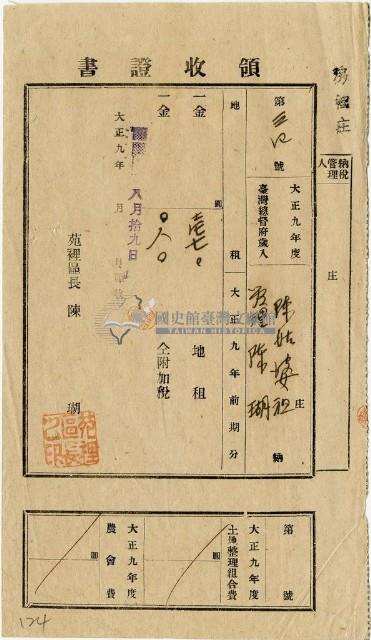 領收證書
房裡庄
納稅管理人
庄
第 號
大正九年度
臺灣總督府歲入
地租
大正九年前期分
陳姑婆祖
房里 陳瑚
庄 納
一金 圓 地租
一金 仝附加稅
大正九年 月
八月拾九日
苑裡區長 陳 瑚
苑裡區長之印
國史館臺灣文獻館
TAIWAN HISTORICA
第 號
大正九年度
土地整理組合費
圓
大正九年度
農會費
圓
124